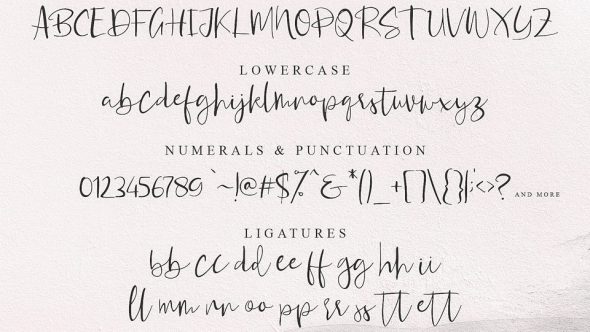 ABCDEFGHIJKLMNOPQRSTUVWXYZ
LOWERCASE
abcdefghijklmnopqrstuvwxyz
NUMERALS & PUNCTUATION
0123456789`~!@#$%^&*()_+[]\{}|;'<>? AND MORE
LIGATURES
bb cc dd ee ff gg hh ii
ll mm nn oo pp rr ss tt ett